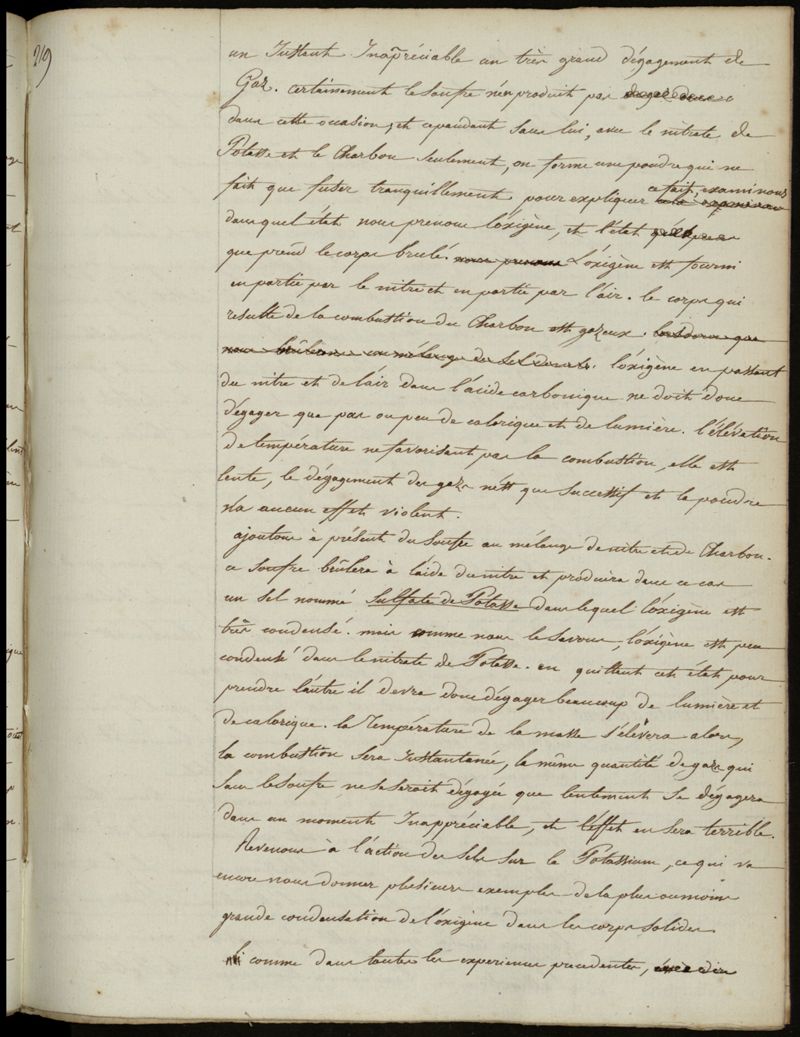 219
un Instant Inapréciable un très grand dégagement de
Gaz. certainement le soufre n'en produit pas
dans cette occasion, et cependant sans lui, avec le nitrate de
Potasse et le Charbon seulement, on forme une poudre qui ne
fait que fuser tranquillement pour expliquer ce fait, examinons
dans quel état nous prenons l'oxigène, et l'état
que prend le corps brulé. nous prenons L'oxigène est fourni
en partie par le nitre et en partie par l'air. le corps qui
resulte de la combustion du Charbon est gazeux. 
nous brûlions un mélange de l'oxigène en passant
du nitre et de l'air dans l'acide carbonique ne doit donc
dégager que pas ou peu de calorique et de lumière. l'élévation
de température ne favorisant pas la combustion, elle est
lente, le dégagement des gaz n'est que successif et la poudre
n'a aucun effet violent.
ajoutons à présent du soufre au mélange de nitre et de Charbon.
ce soufre brûlera à l'aide du nitre et produira dans ce cas
un sel nommé Sulfate de Potasse dans lequel l'oxigène est
très condensé. mais comme nous le savons, l'oxigène est peu
condensé dans le nitrate de Potasse. en quittant cet état pour
prendre l'autre il devra donc dégager beaucoup de lumière et
de calorique. la Température de la masse s'élèvera alors,
la combustion sera Instantanée, la même quantité de gaz qui
sans le soufre ne se serait dégagée que lentement se dégagera
dans un moment Inappréciable, et l'effet en sera terrible.
Revenons à l'action des sels sur le Potassium, ce qui va
encore nous donner plusieurs exemples de la plus ou moins
grande condensation de l'oxigène dans les corps solides
Ici comme dans toutes les experiences precedentes,